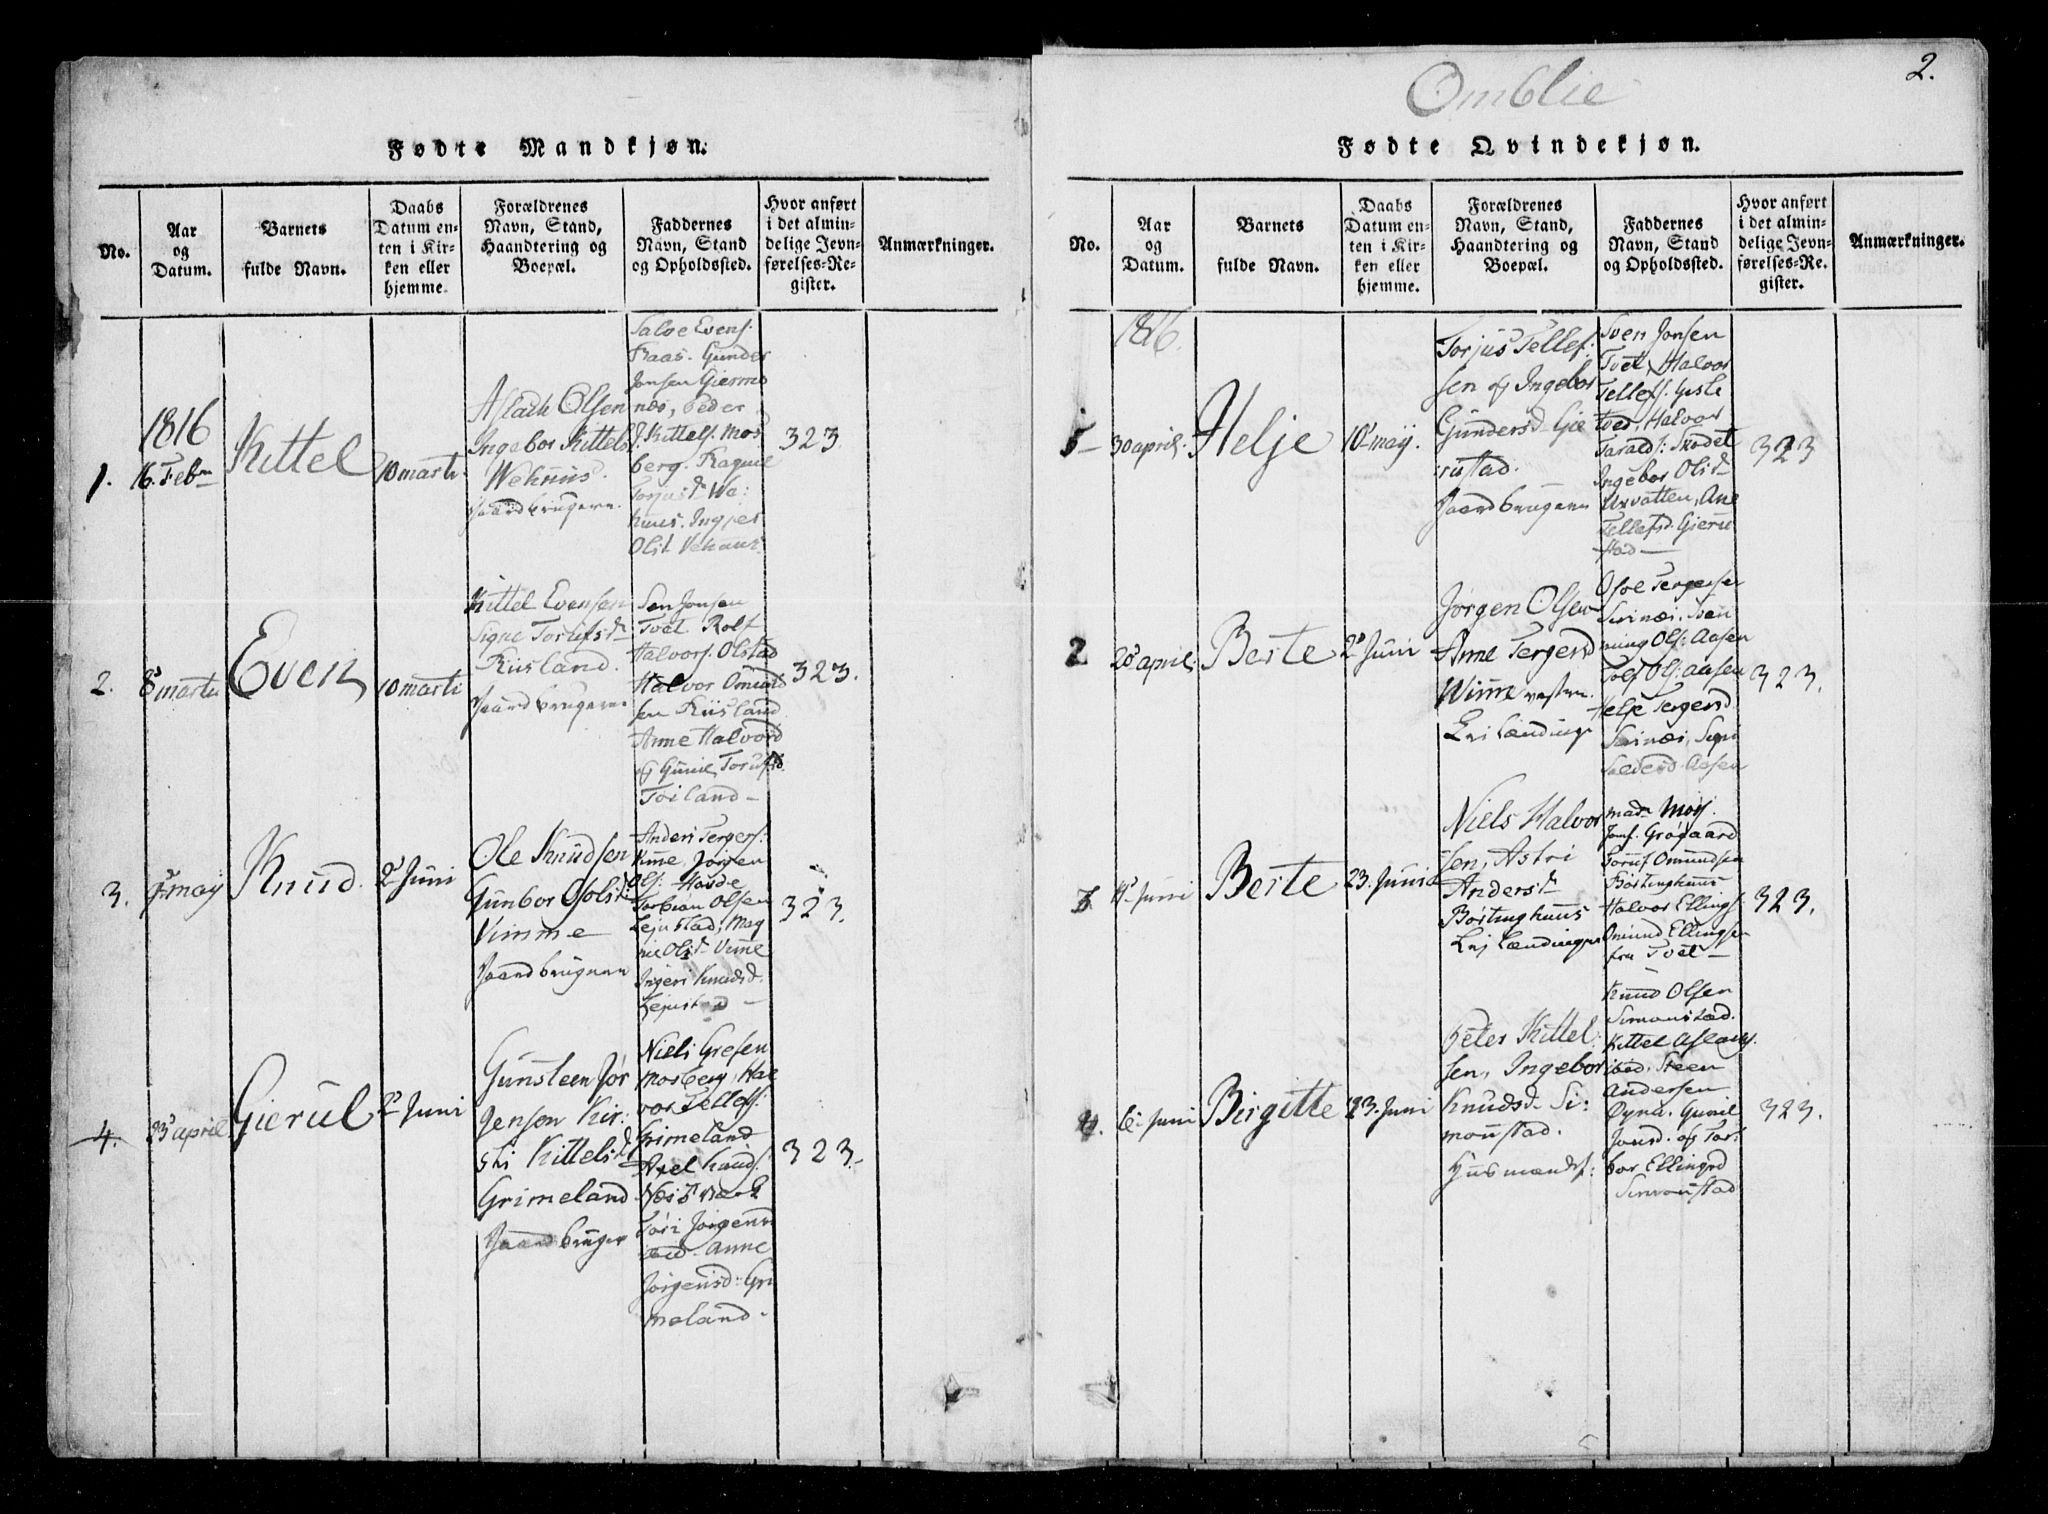 Fødte Mandkjøn.
No.
Aar
og
Datum.
Barnets
fulde Navn.
Daabs
Datum en-
ten i Kir-
ken eller
hjemme.
Forældrenes
Navn, Stand,
Haandtering og
Boepæl.
Faddernes
Navn, Stand
og Opholdssted.
Hvor anført
i det almin-
delige Jevn-
førelses-Re-
gister.
Anmærkninger.
1.
1816
16. Febr
Kittel
10 marti.
Aslach Olsen
Ingebor Kittels
Wehuus.
Gaardbrugere.
Salve Evens.
Raas. Gunder
Jonsen Giermo
næs, Peder
Kittels. Mos
berg. Ragnil
Torjusd. We:
huus. Ingjer
Olsd. Vehuus.
323.
2.
8 marti
Even
10 marti
Kittel Evensen
Signe Torufsd
Riisland.
Gaardbrugere.
Sen Jonsen
Tvet. Rolf
Halvors. Olstad
Halvor Omund
sen Riisland
Anne Halvord
og Gunil Torufsd.
Toiland -
323.
3.
may
Knud.
2 Juni
Ole Knudsen
Gunbor
Vimme
Gaardbrugere
Anders Terjers:
Vime, Jørgen
Ols: Havde
Torbiøn Olsen
Lejustad, Mag
nil Olsd Vime
Ingeri Knudsd.
Lejustad -
323.
4.
23 april
Gierul
2 Juni
Gunsteen Jør
gensen Kir:
sti Kittelsd
Grimeland
Gaardbruger
Niels Gresen
Mosberg, Hal
vor Tellefs:
Grimeland
Axel Knuds.
Næs Værk
Tori Jørgensd
Anne
Jørgensd: Gri
meland.
323.
2.
Omblie
Fødte Qvindekjøn.
No.
Aar
og
Datum.
Barnets
fulde Navn.
Daabs
Datum en-
ten i Kir-
ken eller
hjemme.
Forældrenes
Navn, Stand,
Haandtering og
Boepæl.
Faddernes
Navn, Stand
og Opholdssted.
Hvor anført
i det almin-
delige Jevn-
førelses-Re-
gister.
Anmærkninger.
1816.
30 april.
Helje
10 maÿ.
Torjus Tellef.
sen og Ingebor
Gundersd Gie
rustad.
Gaardbrugere
Sven Jonsen
Tvet, Halvor
Tellefs.
tved, Halvor
Taralds: Skodet
Ingebor Olsd
Uxvatten, Ane
Tellefsd. Gieru
stad -
323
2
28 april.
Berte
2 Juni
Jørgen Olsen
Anne Tergersd
Wimme vestre.
Lejlændinge
Osve Tergersen
Svinæs,
ning Ols: Aasen
Tolf Ols: Aasen
Helje Tergersd.
Svinæs, Signe
Aasen
323.
3.
Juni
Berte
23. Juni
Niels Halvor
sen, Astri
Andersd
Børtinghuus
Lejlændinge
Mad. Moss.
Jomf. Grøgaard
Toruf Omundsen
Børtinghuus
Halvor Ellings:
Omund Ellingsen
fra Tvet -
323.
4.
6. Juni
Birgitte
23. Juni
Peter Kittel:
sen, Ingebor
Knudsd Si:
monstad.
Huusmandsf:
Knud Olsen
Simonstad.
Kittel Aslachs.
Steen
Andersen
Dyna. Gunil
Jonsd. og Tor:
bor Ellingsd
Simonstad
323.